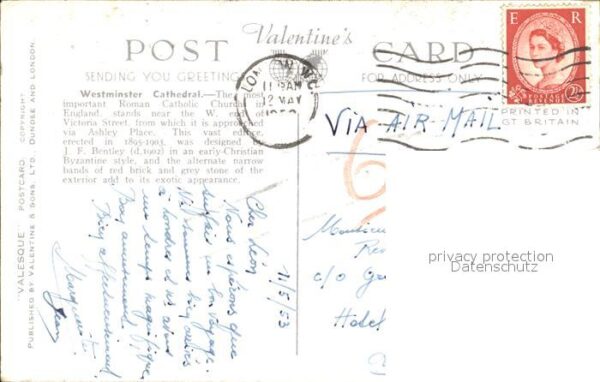 Valentine's
POST CARD
SENDING YOU GREETINGS
FOR ADDRESS ONLY
Westminster Cathedral.—The most
important Roman Catholic Church in
England, stands near the W. end of
Victoria Street, from which it is approached
via Ashley Place. This vast edifice,
erected in 1895-1903, was designed by
J. F. Bentley (d.1902) in an early-Christian
Byzantine style, and the alternate narrow
bands of red brick and grey stone of the
exterior add to its exotic appearance.
"VALESQUE" POSTCARD. COPYRIGHT.
PUBLISHED BY VALENTINE & SONS, LTD. DUNDEE AND LONDON.
LONDON W.C.
12 MAY
E R
POSTAGE
REVENUE
2½
PRINTED IN
GT BRITAIN
VIA AIR MAIL
11/5/53
Cher Léon
Nous espérons que
un bon voyage.
Ns sommes bien
à Londres et ns avons
un temps magnifique
Bon amusement
Bien affectueusement
Marguerite
Jean
Monsieur
c/o
Hotel
privacy protection
Datenschutz